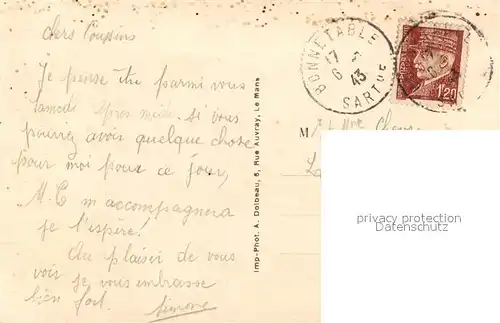 chers Cousins
Je pense être parmi vous
samedi après midi. Si vous
pourrez avoir quelque chose
pour moi pour ce jour,
M. C m'accompagnera
je l'espère!
Au plaisir de vous
voir je vous embrasse
bien fort. Simone
Imp-Phot. A. Dolbeau, 5, Rue Auvray, Le Mans
BONNETABLE
17
6 43
SARTHE
1,20
M et Mme
privacy protection
Datenschutz